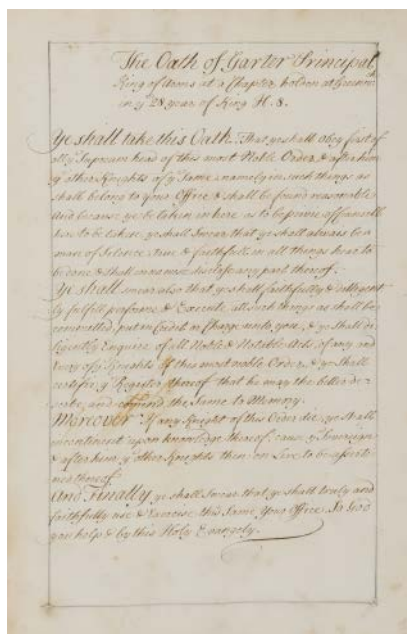 The Oath of Garter Principal
King of Arms at a Chapter holden at Greenwch
in ye 28 year of King H. 8.
Ye shall take this Oath. That ye shall obey first of
all ye Supream head of this most Noble Order, & after him
ye other Knights of ye Same, namely in such things as
shall belong to your Office & shall be found reasonable
And because ye be taken in here as to be privie of Councell
here to be taken, ye shall Swear, that ye shall always be a
man of Silence, true & faithfull, in all things hear to
be done & shall in no wise disclose any part thereof.
Ye shall swear also that ye shall faithfully & diligent
ly fulfill, performe & Execute, all such things as shall be
committed, put in Credit or Charge unto you, & ye shall di-
ligently Enquire of all Noble & Notable Acts, of every and
Every of ye Knights of this most noble Order, & ye Shall
certifie ye Register thereof that he may the better de-
scribe, and commend the Same to Memory.
Moreover If any Knight of this Order die, ye Shall
incontinent upon knowledge thereof, cause ye Sovereign
& after him ye other Knights then on Live to be ascertai-
ned thereof.
And Finally ye shall Swear that ye shall truly and
faithfully use & Exercise this Same Your Office. So God
you help & by this Holy Evangely.